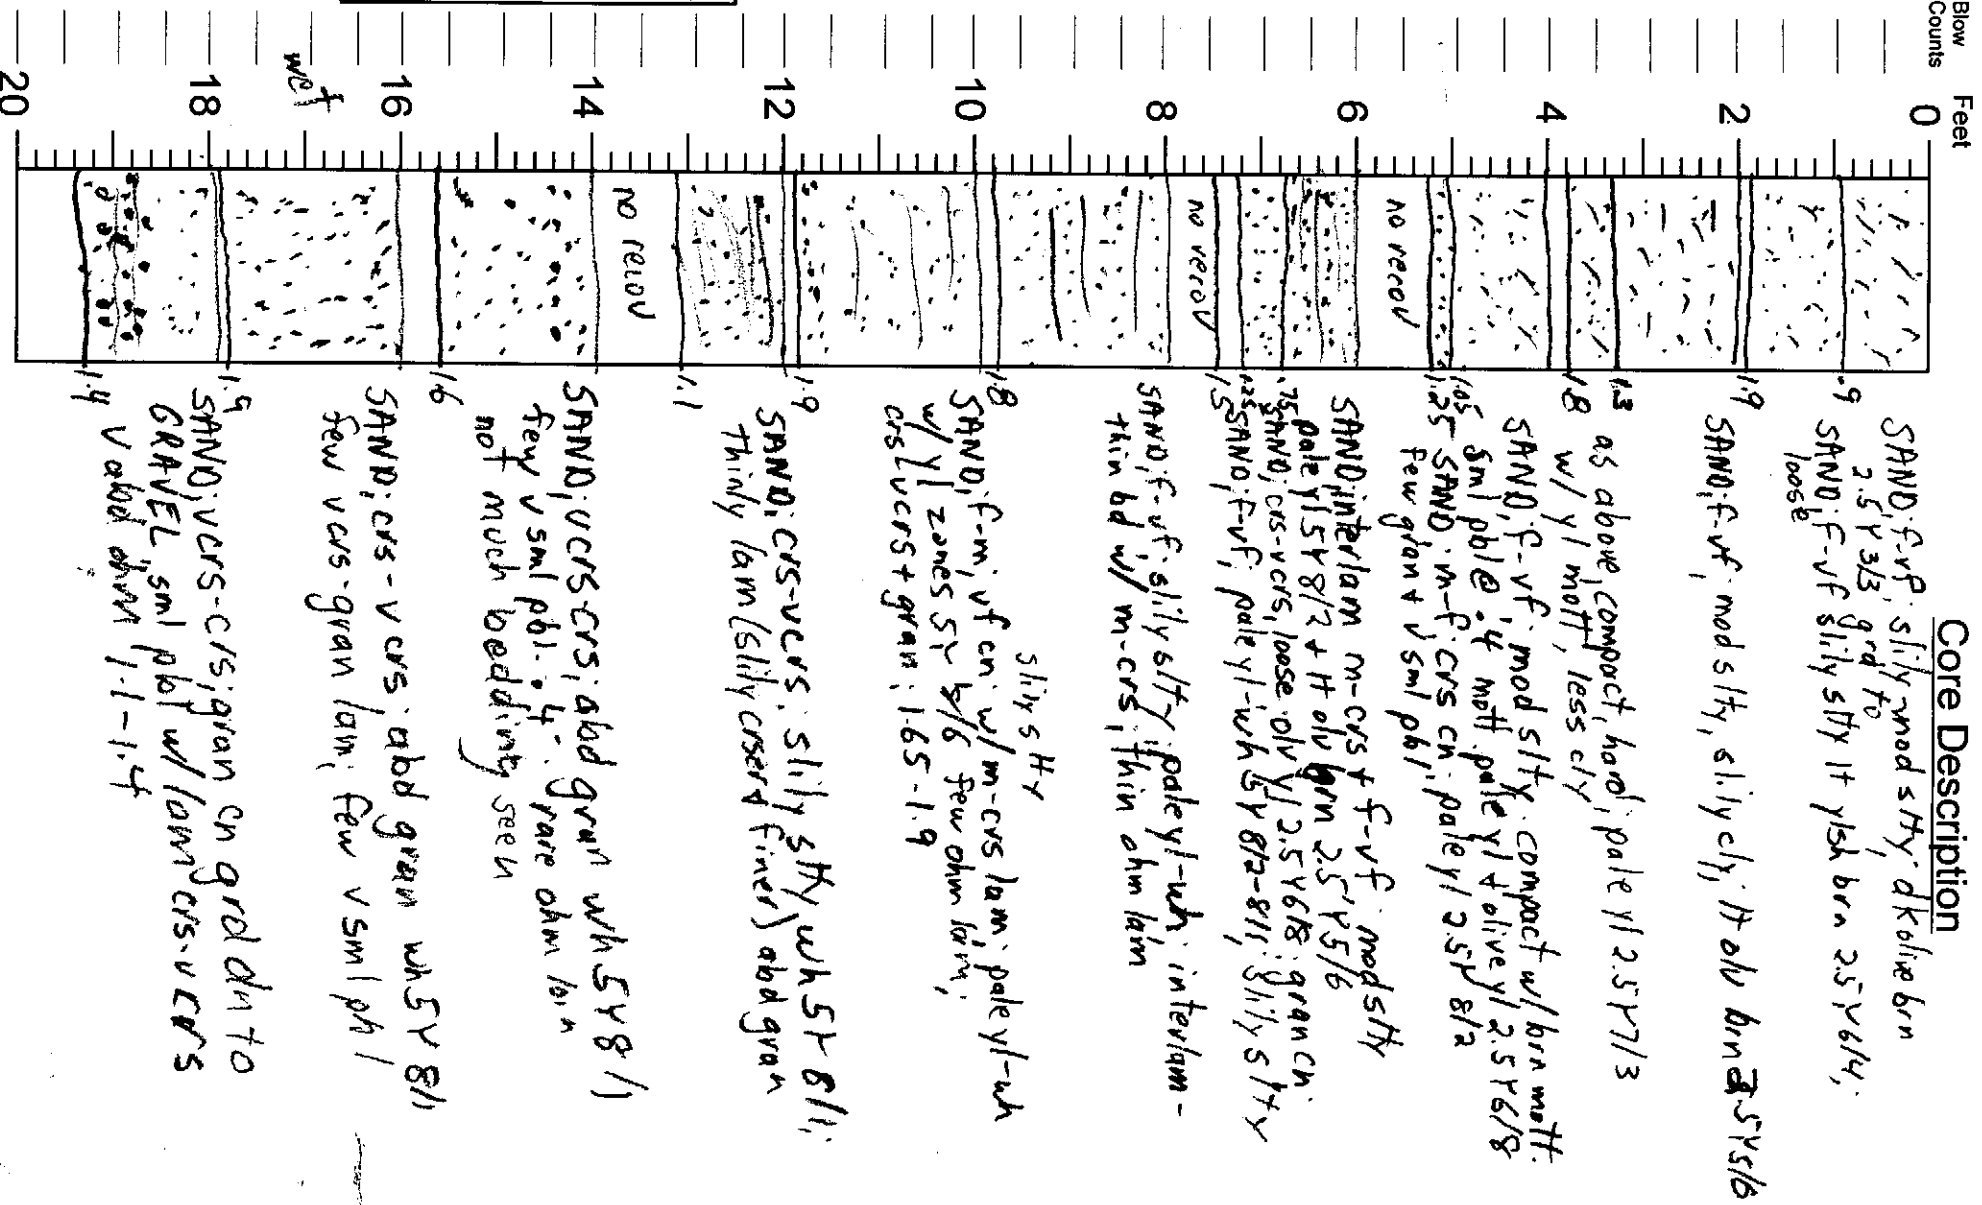 Core Description
Blow
Counts
Feet
0
SAND; f-vf; slily-mod slty; dk olive brn
2.5Y 3/3 grd to
.9
SAND; f-vf slily slty lt ylsh brn 2.5Y 6/4;
loose
1.9
2
SAND; f-vf, mod slty, slily cly; lt olv brn 2.5Y5/6
1.3
as above, compact, hard, pale yl 2.5Y7/3
1.8
w/ yl mott, less cly
4
SAND, f-vf; mod slty. compact w/ brn mott.
sml pbl @ .4 mott pale yl + olive yl 2.5Y6/8
1.05
1.25 SAND m-f; crs cn; pale yl 2.5Y 8/2
few gran + v sml pbl
no recov
6
SAND; interlam m-crs + f-vf; mod slty
pale yl 5Y 8/2 + lt olv brn 2.5Y5/6
.75
SAND; crs-vcrs, loose olv yl 2.5Y6/8; gran cn
1.25 SAND; f-vf, pale yl-wh 5Y 8/2-8/1; slily slty
1.5
no recov
8
SAND; f-vf; slily slty; pale yl-wh; interlam-
thin bd w/ m-crs; thin ohm lam
1.8
slily slty
10
SAND; f-m; vf cn; w/ m-crs lam; pale yl-wh
w/ yl zones 5Y 8/6 few ohm lam;
crs/vcrs + gran; 1.65-1.9
1.9
12
SAND; crs-vcrs; slily slty wh 5Y 8/1;
Thinly lam (slily crser + finer) abd gran
1.1
no recov
14
SAND; vcrs-crs; abd gran wh 5Y8/1
few v sml pbl. .4-. rare ohm lam
not much bedding seen
1.6
16
SAND; crs-vcrs; abd gran wh 5Y 8/1
few vcrs-gran lam; few v sml pbl
wet
1.9
18
SAND; vcrs-crs; gran cn grd dn to
GRAVEL, sml pbl w/ lam crs-vcrs
v abd ohm 1.1-1.4
1.4
20